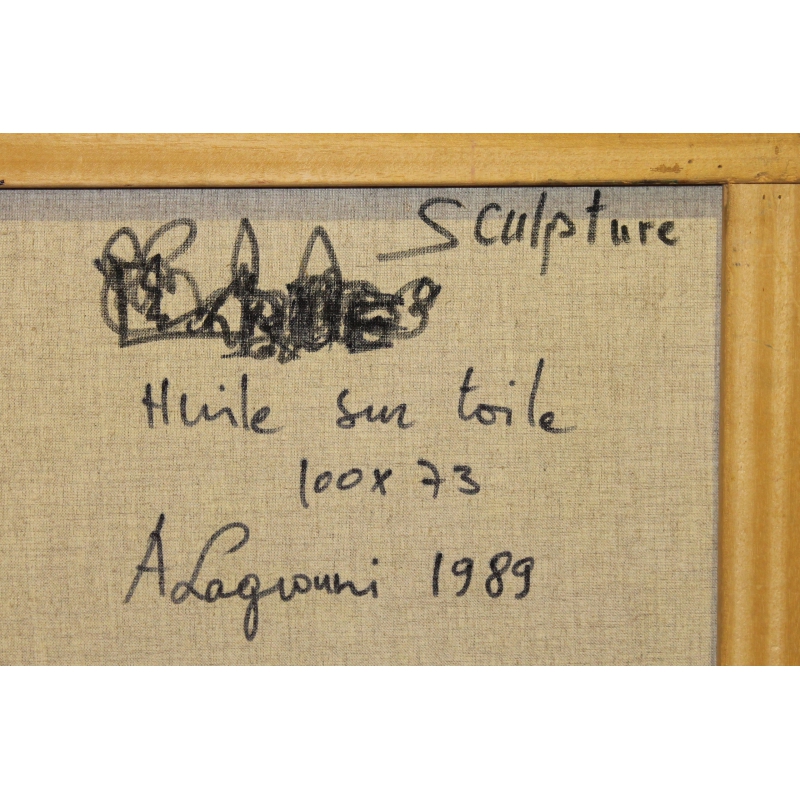 Sculpture
Huile sur toile
100x 73
A Lagrouni 1989